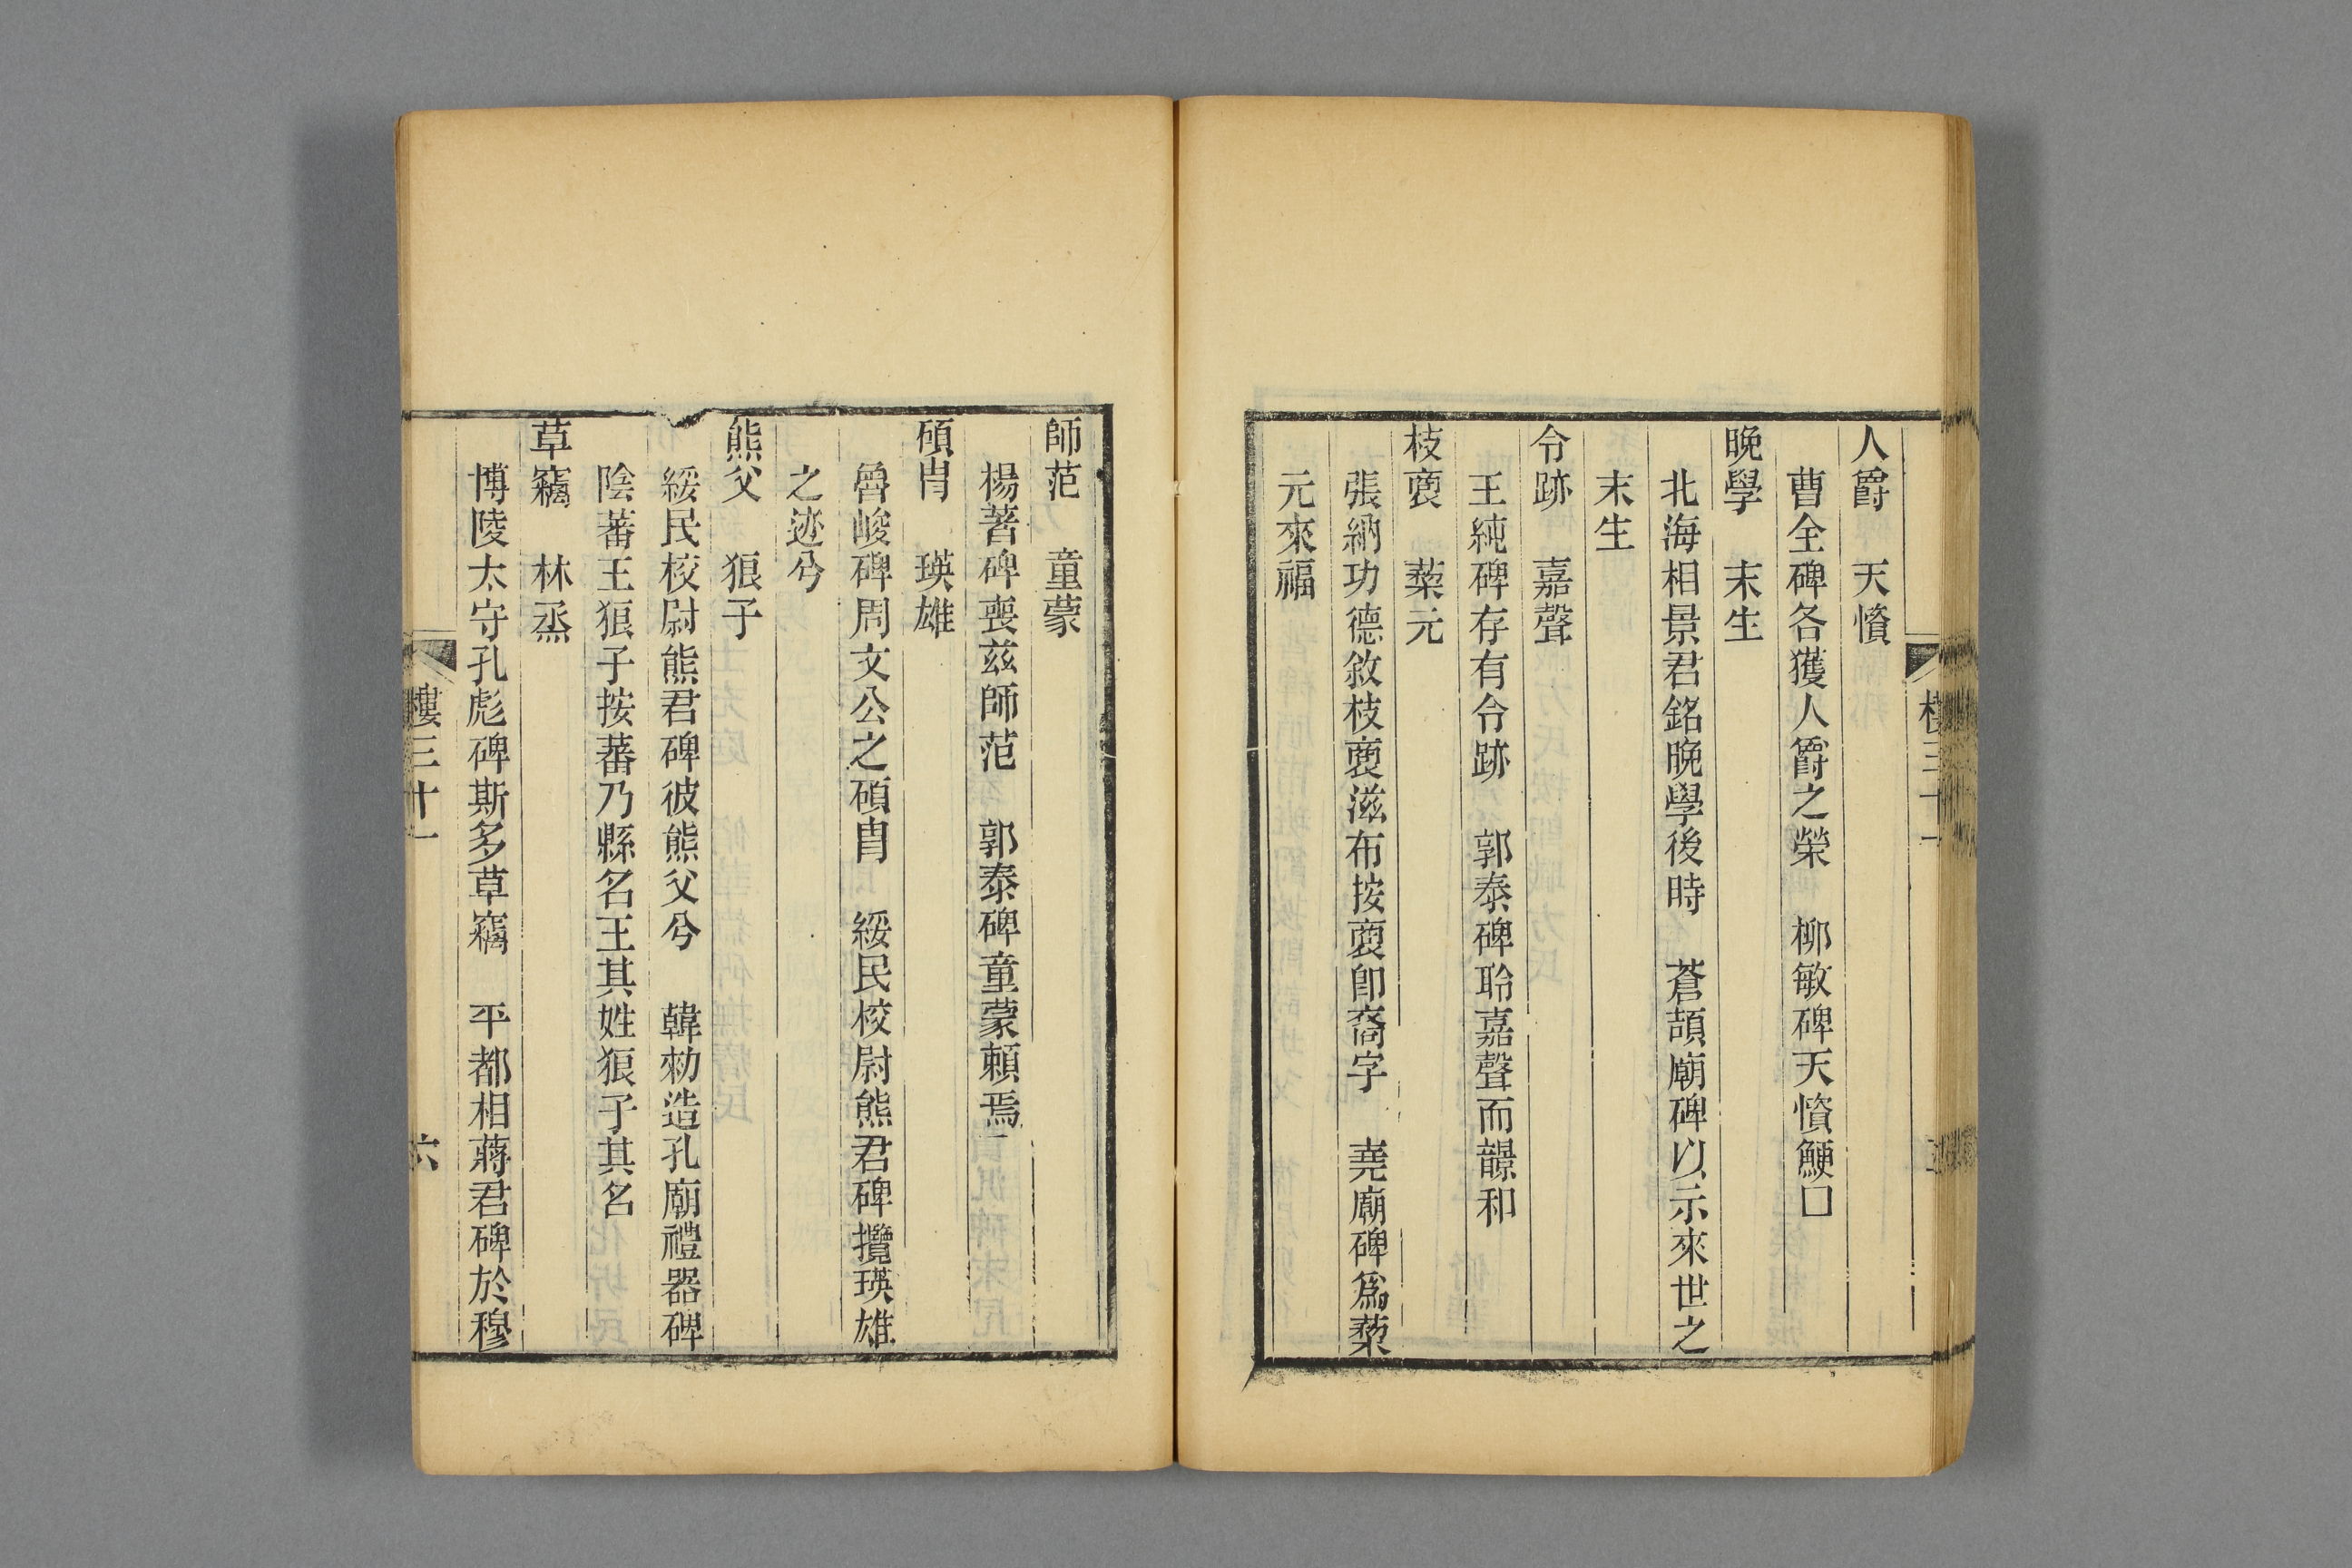 人爵　天憤
曹全碑各獲人爵之榮　柳敏碑天憤鯁□
晚學　末生
北海相景君銘晚學後時　蒼頡廟碑以示來世之
末生
令跡　嘉聲
王純碑存有令跡　郭泰碑聆嘉聲而響和
枝裔　蘂元
張納功德敘枝裔滋布按裔卽裔字　堯廟碑爲蘂
元來福
師范　童蒙
楊著碑喪兹師范　郭泰碑童蒙賴焉
碩胄　瑛雄
魯峻碑周文公之碩胄　綏民校尉熊君碑攬瑛雄
之迹兮
熊父　狼子
綏民校尉熊君碑彼熊父兮　韓勑造孔廟禮器碑
陰蕃王狼子按蕃乃縣名王其姓狼子其名
草竊　林烝
博陵太守孔彪碑斯多草竊　平都相蔣君碑於穆
樓三十一
六